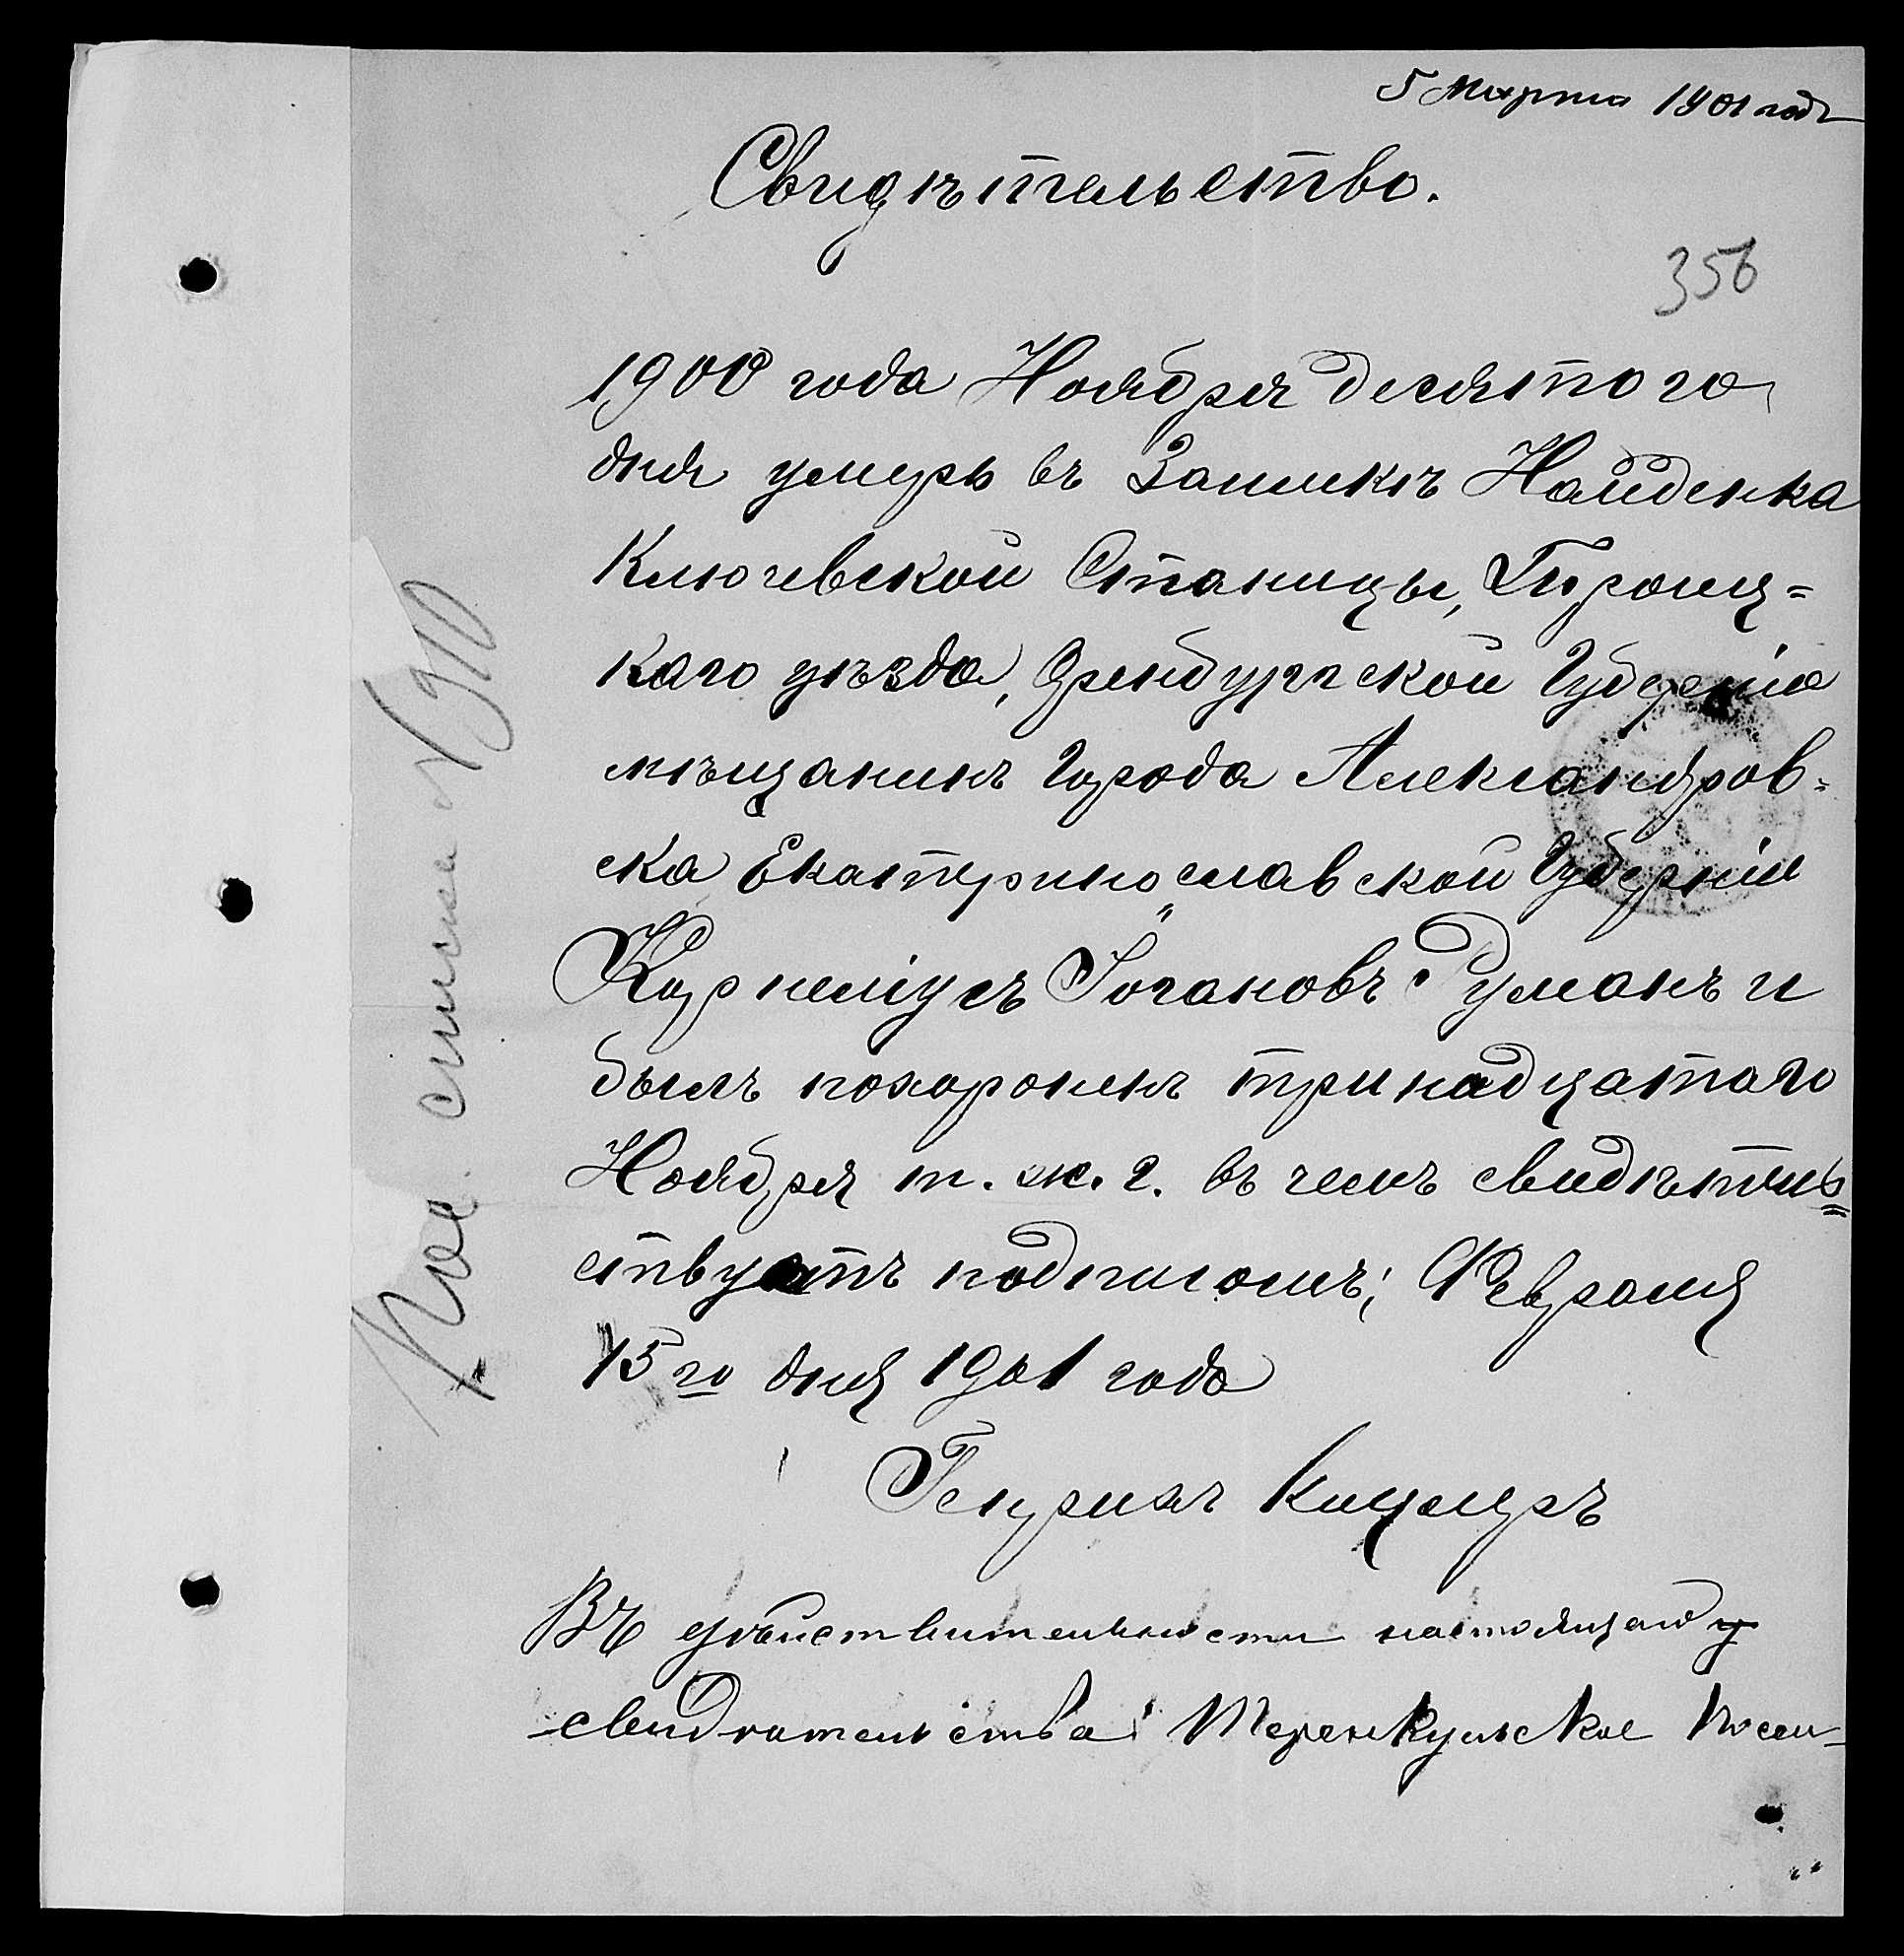 5 Марта 1901 года
Свидѣтельство.
356
1900 года Ноября десятого
дня умеръ въ Заимкѣ Найденка
Ключевской Станицы, Троиц=
каго уѣзда, Оренбургской Губерніи
мѣщанинъ Города Александров=
ска Екатеринославской Губерніи
Корнеліусъ Іогановъ Туманъ и
былъ похороненъ тринадцатаго
Ноября т. ж. г. въ чемъ свидѣтель=
ствуетъ подписомъ; Февраля
15го дня 1901 года
Генрихъ
Въ дѣйствительности настоящаго
свидѣтельства Теренкульское Посел-
По списке №910